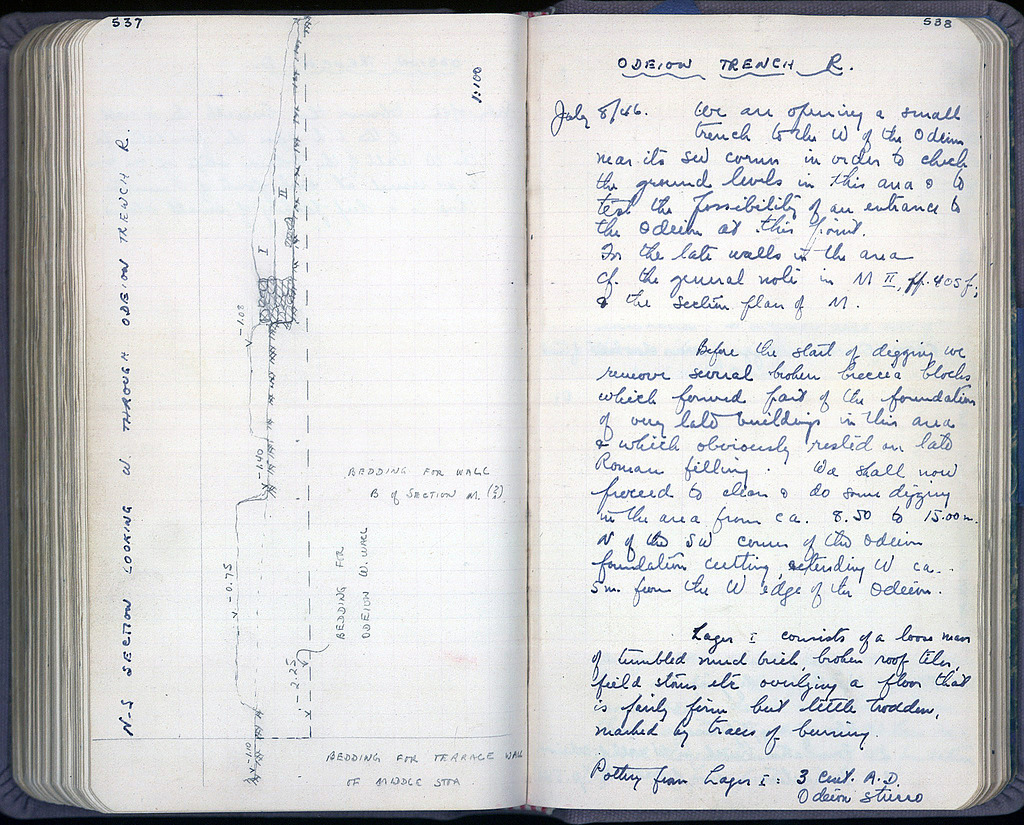 537
1:100
N-S SECTION LOOKING W. THROUGH ODEION TRENCH R.
II
I
-1.08
-1.40
BEDDING FOR WALL
B of SECTION M. (?)
-0.75
BEDDING FOR
ODEION W. WALL
-2.25
-1.10
BEDDING FOR TERRACE WALL
OF MIDDLE STOA
538
ODEION TRENCH R.
July 8/46. We are opening a small
trench to the W of the Odeion
near its SW corner in order to check
the ground levels in this area & to
test the possibility of an entrance to
the Odeion at this point.
For the late walls in the area
cf. the general note in M II, pp. 405 f;
& the section plan of M.
Before the start of digging we
remove several broken breccia blocks
which formed part of the foundation
of very late buildings in this area
& which obviously rested on late
Roman filling. We shall now
proceed to clean & do some digging
in the area from ca. 8.50 to 15.00 m.
N of the SW corner of the Odeion
foundation cutting, extending W ca.
5m. from the W edge of the Odeion.
Lager I consists of a loose mass
of tumbled mud brick, broken roof tiles,
field stones etc overlying a floor that
is fairly firm but little trodden,
marked by traces of burning.
Pottery from Lager I: 3 cent. A.D.
Odeion stucco